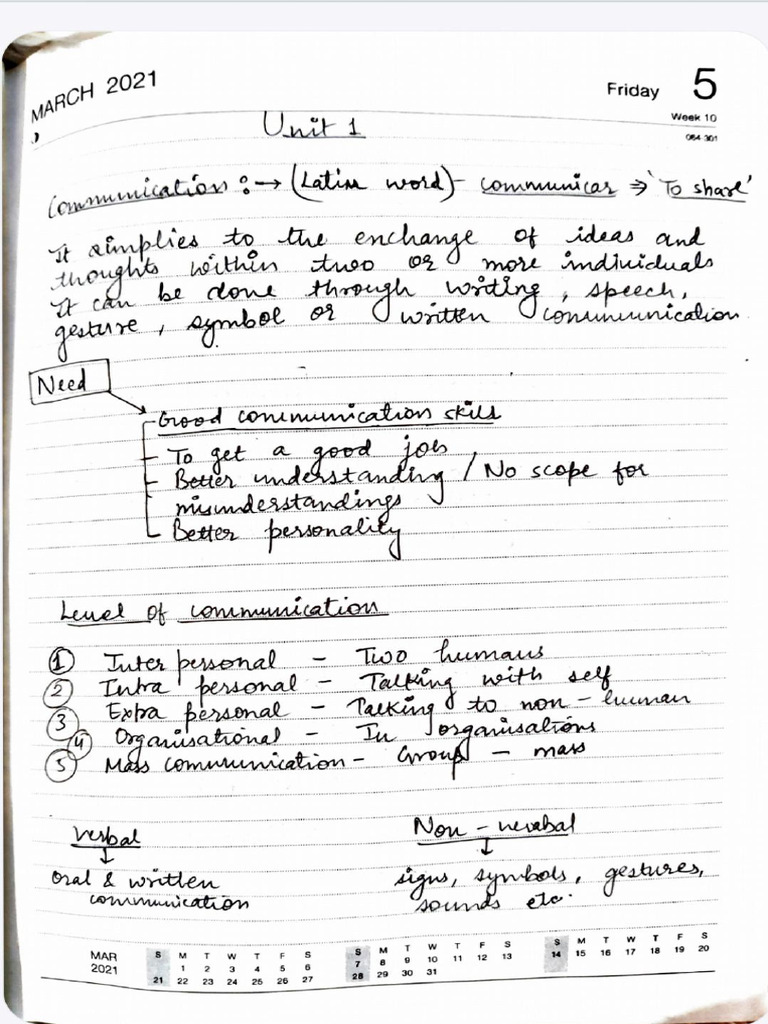 MARCH 2021
Friday 5
Week 10
064-301
Unit 1
Communication :→ (Latin word) - communicar ⇒ 'To share'
It simplies to the enchange of ideas and
thoughts within two or more individuals
It can be done through writing, speech,
gesture, symbol or written communication
Need
Good communication skill
- To get a good job
- Better understanding / No scope for
misunderstandings
- Better personality
Level of communication
1 Inter personal - Two humans
2 Intra personal - Talking with self
3 Extra personal - Talking to non-human
4 Organisational - In organisations
5 Mass communication - Group - mass
Verbal Non-verbal
↓ ↓
Oral & written signs, symbols, gestures,
communication sounds etc.
MAR 2021
S M T W T F S S M T W T F S S M T W T F S
1 2 3 4 5 6 7 8 9 10 11 12 13 14 15 16 17 18 19 20
21 22 23 24 25 26 27 28 29 30 31